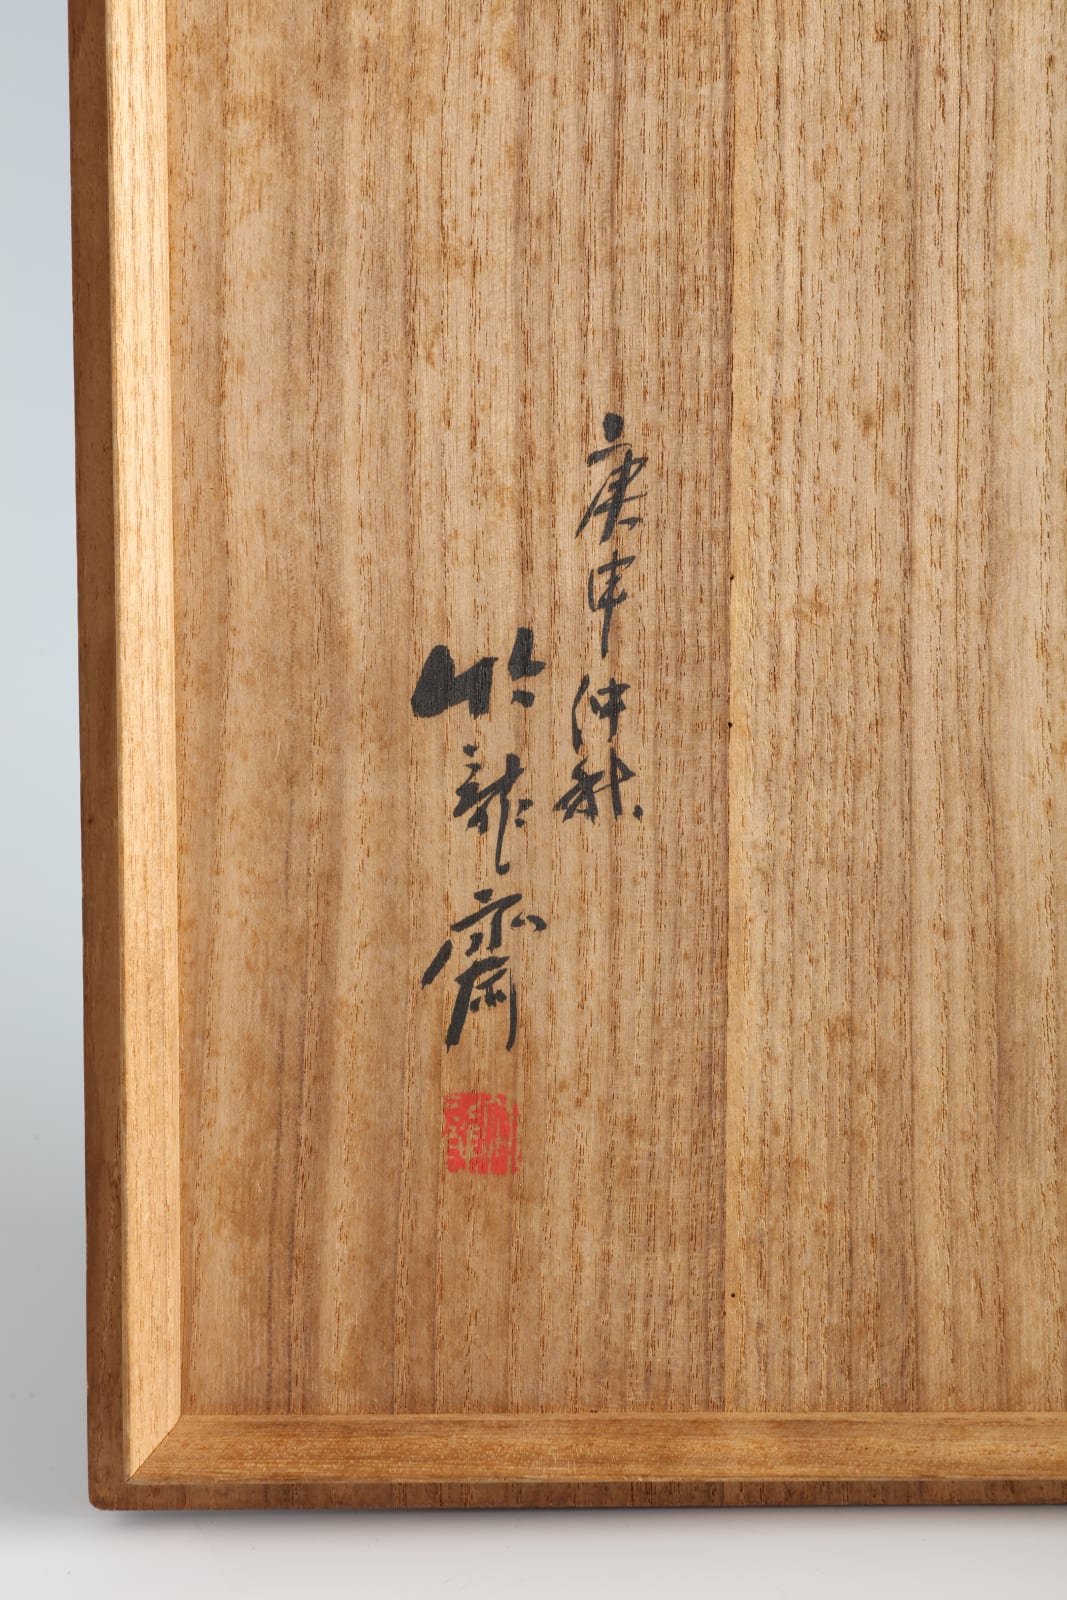 庚申仲秋
竹龍齋